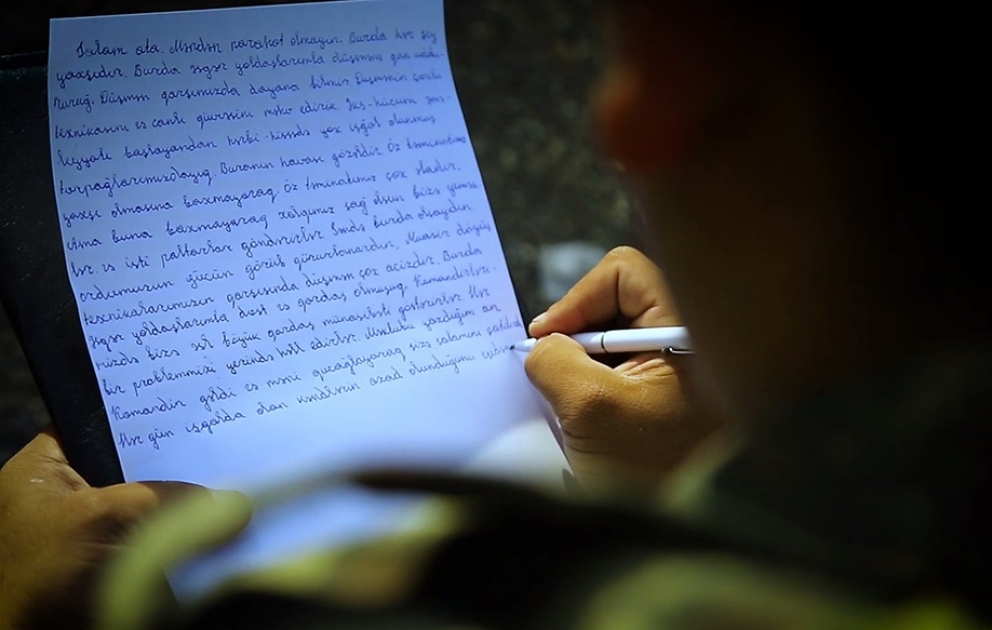 Salam ata. Məndən narahat olmayın. Burda hər şey
yaxşıdır. Burda əsgər yoldaşlarımla düşmənə qan uddu-
ruruğ. Düşmən qarşımızda dayana bilmir. Düşmənin çoxlu
texnikasını və canlı qüvvəsini məhv edirik. Əks-hücum əmə-
liyyatı başlayandan hərbi-hissədə yox işğal olunmuş
torpağlarımızdayığ. Buranın havası gözəldir. Öz təminatımız
yaxşı olmasına baxmayarağ. Öz təminatımız çox əladır.
Ama buna baxmayarağ xalqımız sağ olsun bizə yemək
lər və isti paltarlar göndərirlər. Əmdə burda olsaydın
ordumuzun gücün görüb qürurlanardın. Müasir döyüş
texnikalarımızın qarşısında düşmən çox acizdir. Burda
əsgər yoldaşlarımla dost və qardaş olmuşuğ. Komandirləri-
mizdə bizə əsl böyük qardaş münasibəti göstərirlər. Hər
bir problemimizi yerində həll edirlər. Məktubu yazdığım an
Komandir gəldi və məni qucağlayarağ sizə salamını çatdırdı
Hər gün işğalda olan kəndlərin azad olunduğunu eşidirik